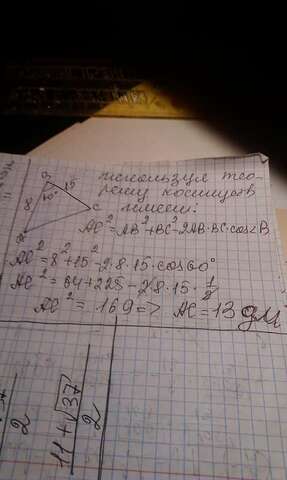 используя тео-
рему косинусов
имеем:
B
15
8
60°
C
AC²=AB²+BC²-2AB·BC·cos∠B
AC²=8²+15²-2·8·15·cos60°
AC²=64+225-2·8·15·1/2
AC²=169=> AC=13 дм
11+√37
2
2